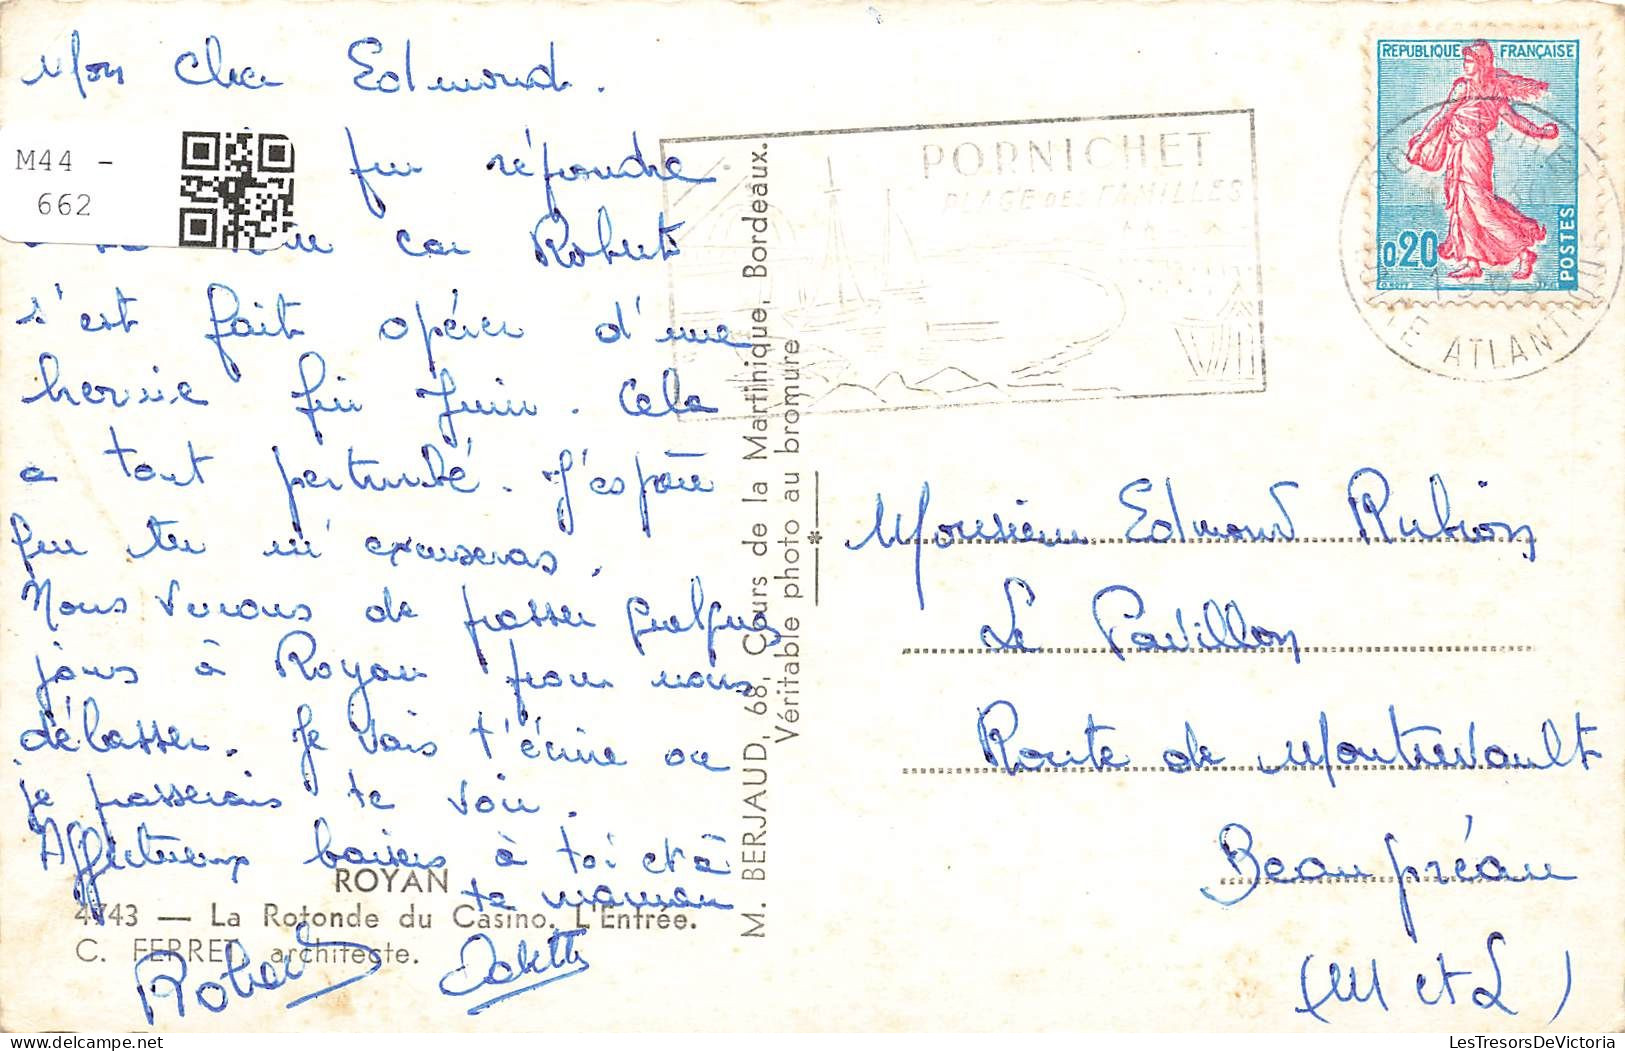 Mon cher Edmond.
pu répondre
car Robert
s'est fait opérer d'une
hernie fin Juin. Cela
a tout perturbé. J'espère
que tu m'excuseras.
Nous venons de passer quelques
jours à Royan pour nous
délasser. Je vais t'écrire ou
je passerais te voir.
Affectueux baisers à toi et à
ta maman
Robert Odette
ROYAN
4743 — La Rotonde du Casino. L'Entrée.
C. FERRET architecte.
M44 -
662
M. BERJAUD, 68, Cours de la Martinique, Bordeaux.
Véritable photo au bromure
PORNICHET
PLAGE DES FAMILLES
REPUBLIQUE FRANÇAISE
0,20
POSTES
ATLANTIQUE
Monsieur Edmond Rubion
Le Pavillon
Route de Montrevault
Beaupréau
(M et L)
LesTresorsDeVictoria